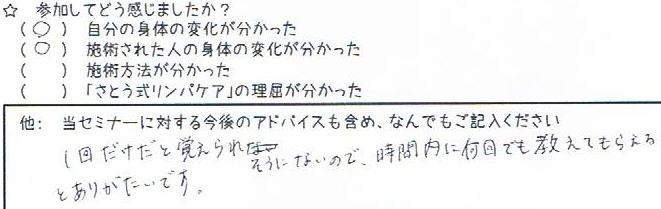 ☆ 参加してどう感じましたか?
( ○ ) 自分の身体の変化が分かった
( ○ ) 施術された人の身体の変化が分かった
(   ) 施術方法が分かった
(   ) 「さとう式リンパケア」の理屈が分かった
他: 当セミナーに対する今後のアドバイスも含め、なんでもご記入ください
1回だけだと覚えられそうにないので、時間内に何回でも教えてもらえる
とありがたいです。